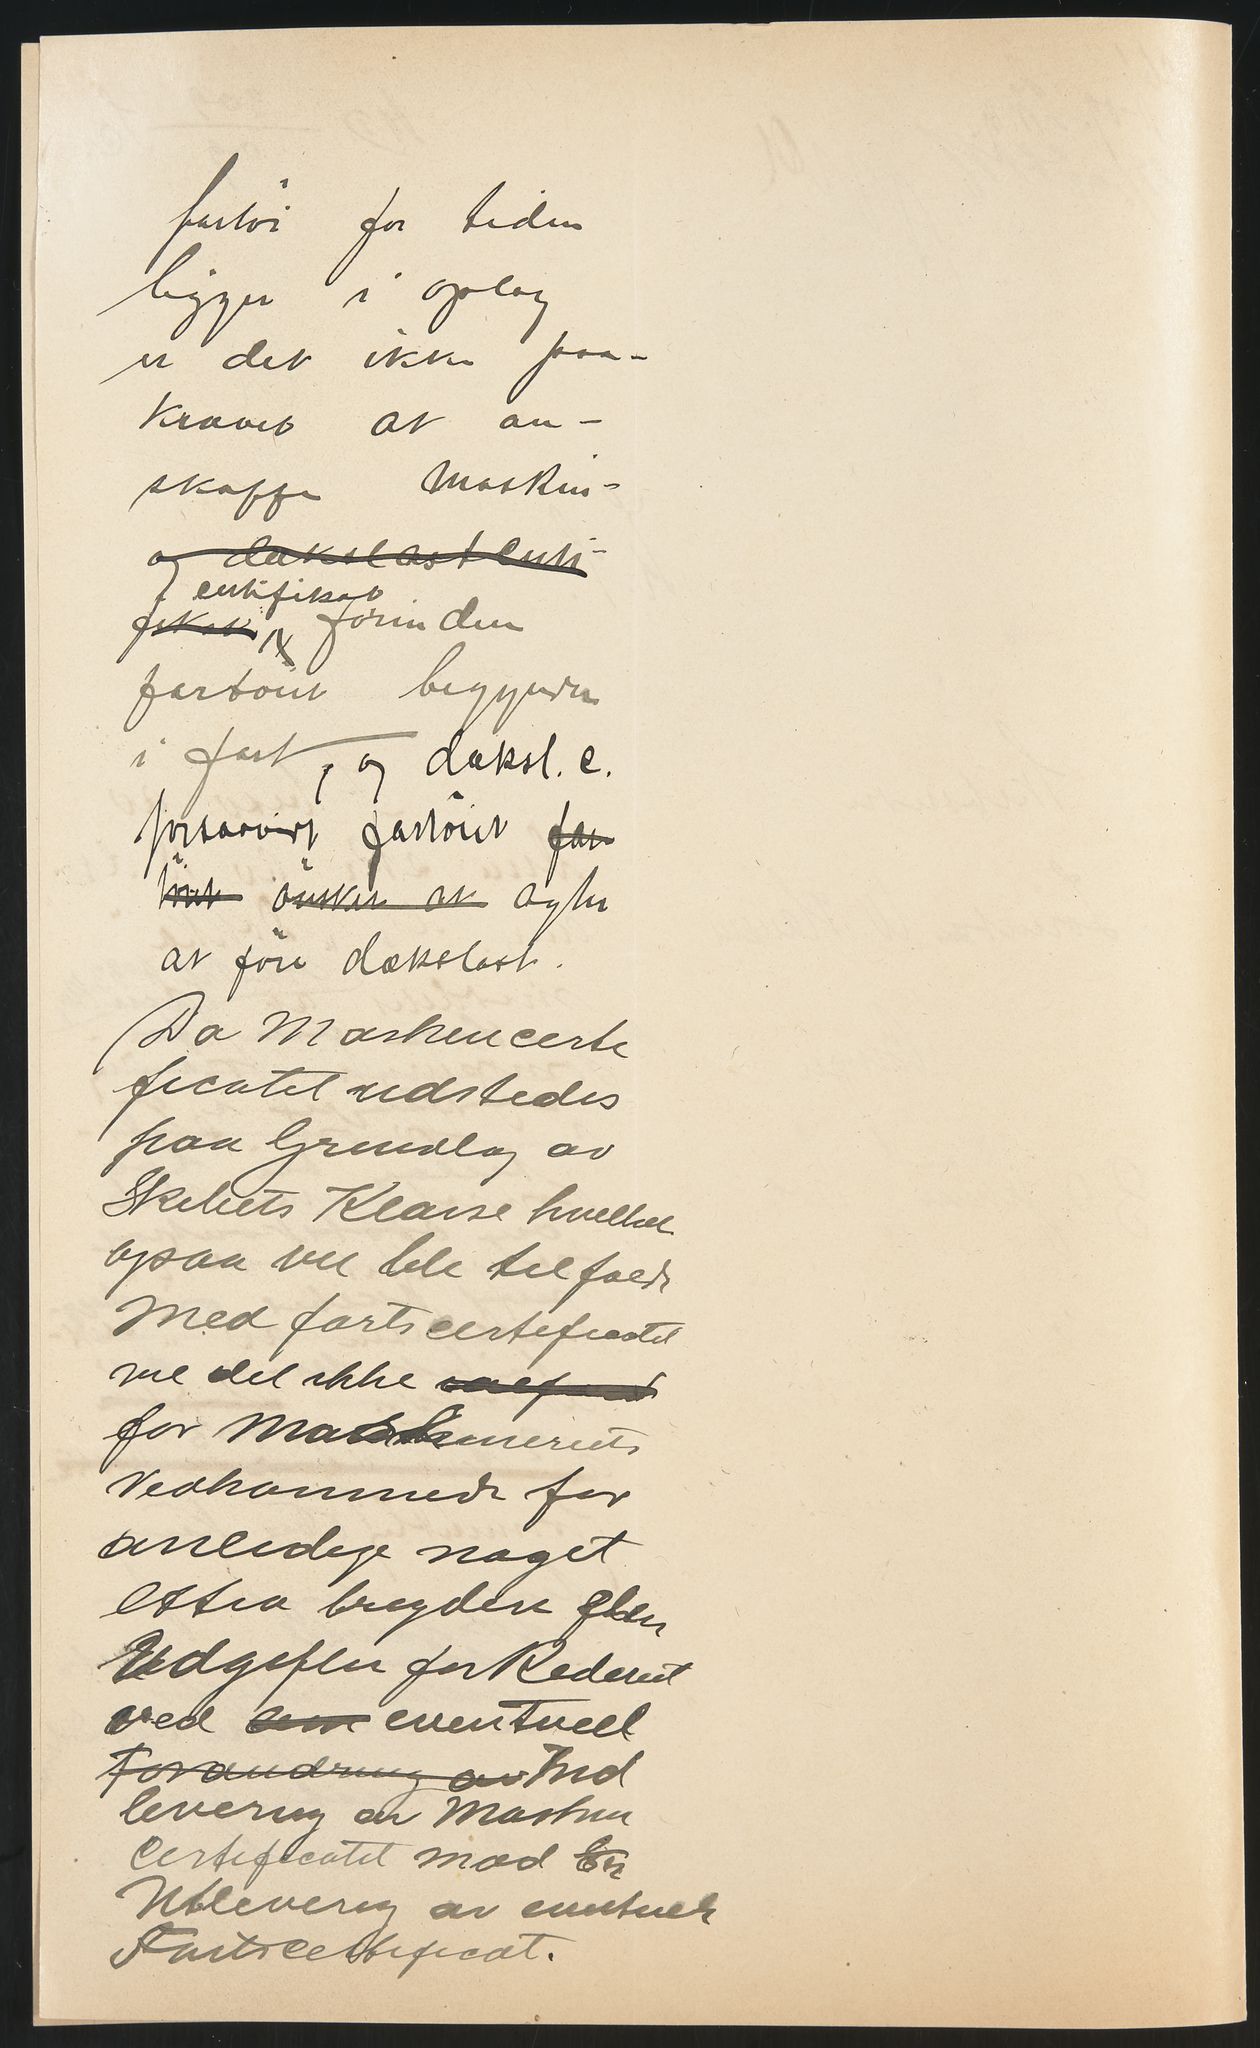 fartöi for tiden
ligger i oplag
er det ikke paa-
krævet at an-
skaffe maskin-
og dækslast certi-
certifikat
fikat förinden
fartöiet begynder
i fart, og däksl. c.
forsaavidt fartöiet far
töiet önsker at agter
at före dækslast.
Da Maskincerti
ficatet udstedes
paa Grundlag av
Skibets Klasse hvilket
ogsaa vil bli tilfælde
Med fartscertificatet
vil det ikke
for Maskineriets
Vedkommende for
anledige noget
extra bryderi eller
Udgifter for Rederiet
ved eventuel
Forandring av Ind
levering av Maskin
Certificatet mod
Utlevering av eventuelt
Fartscertificat.